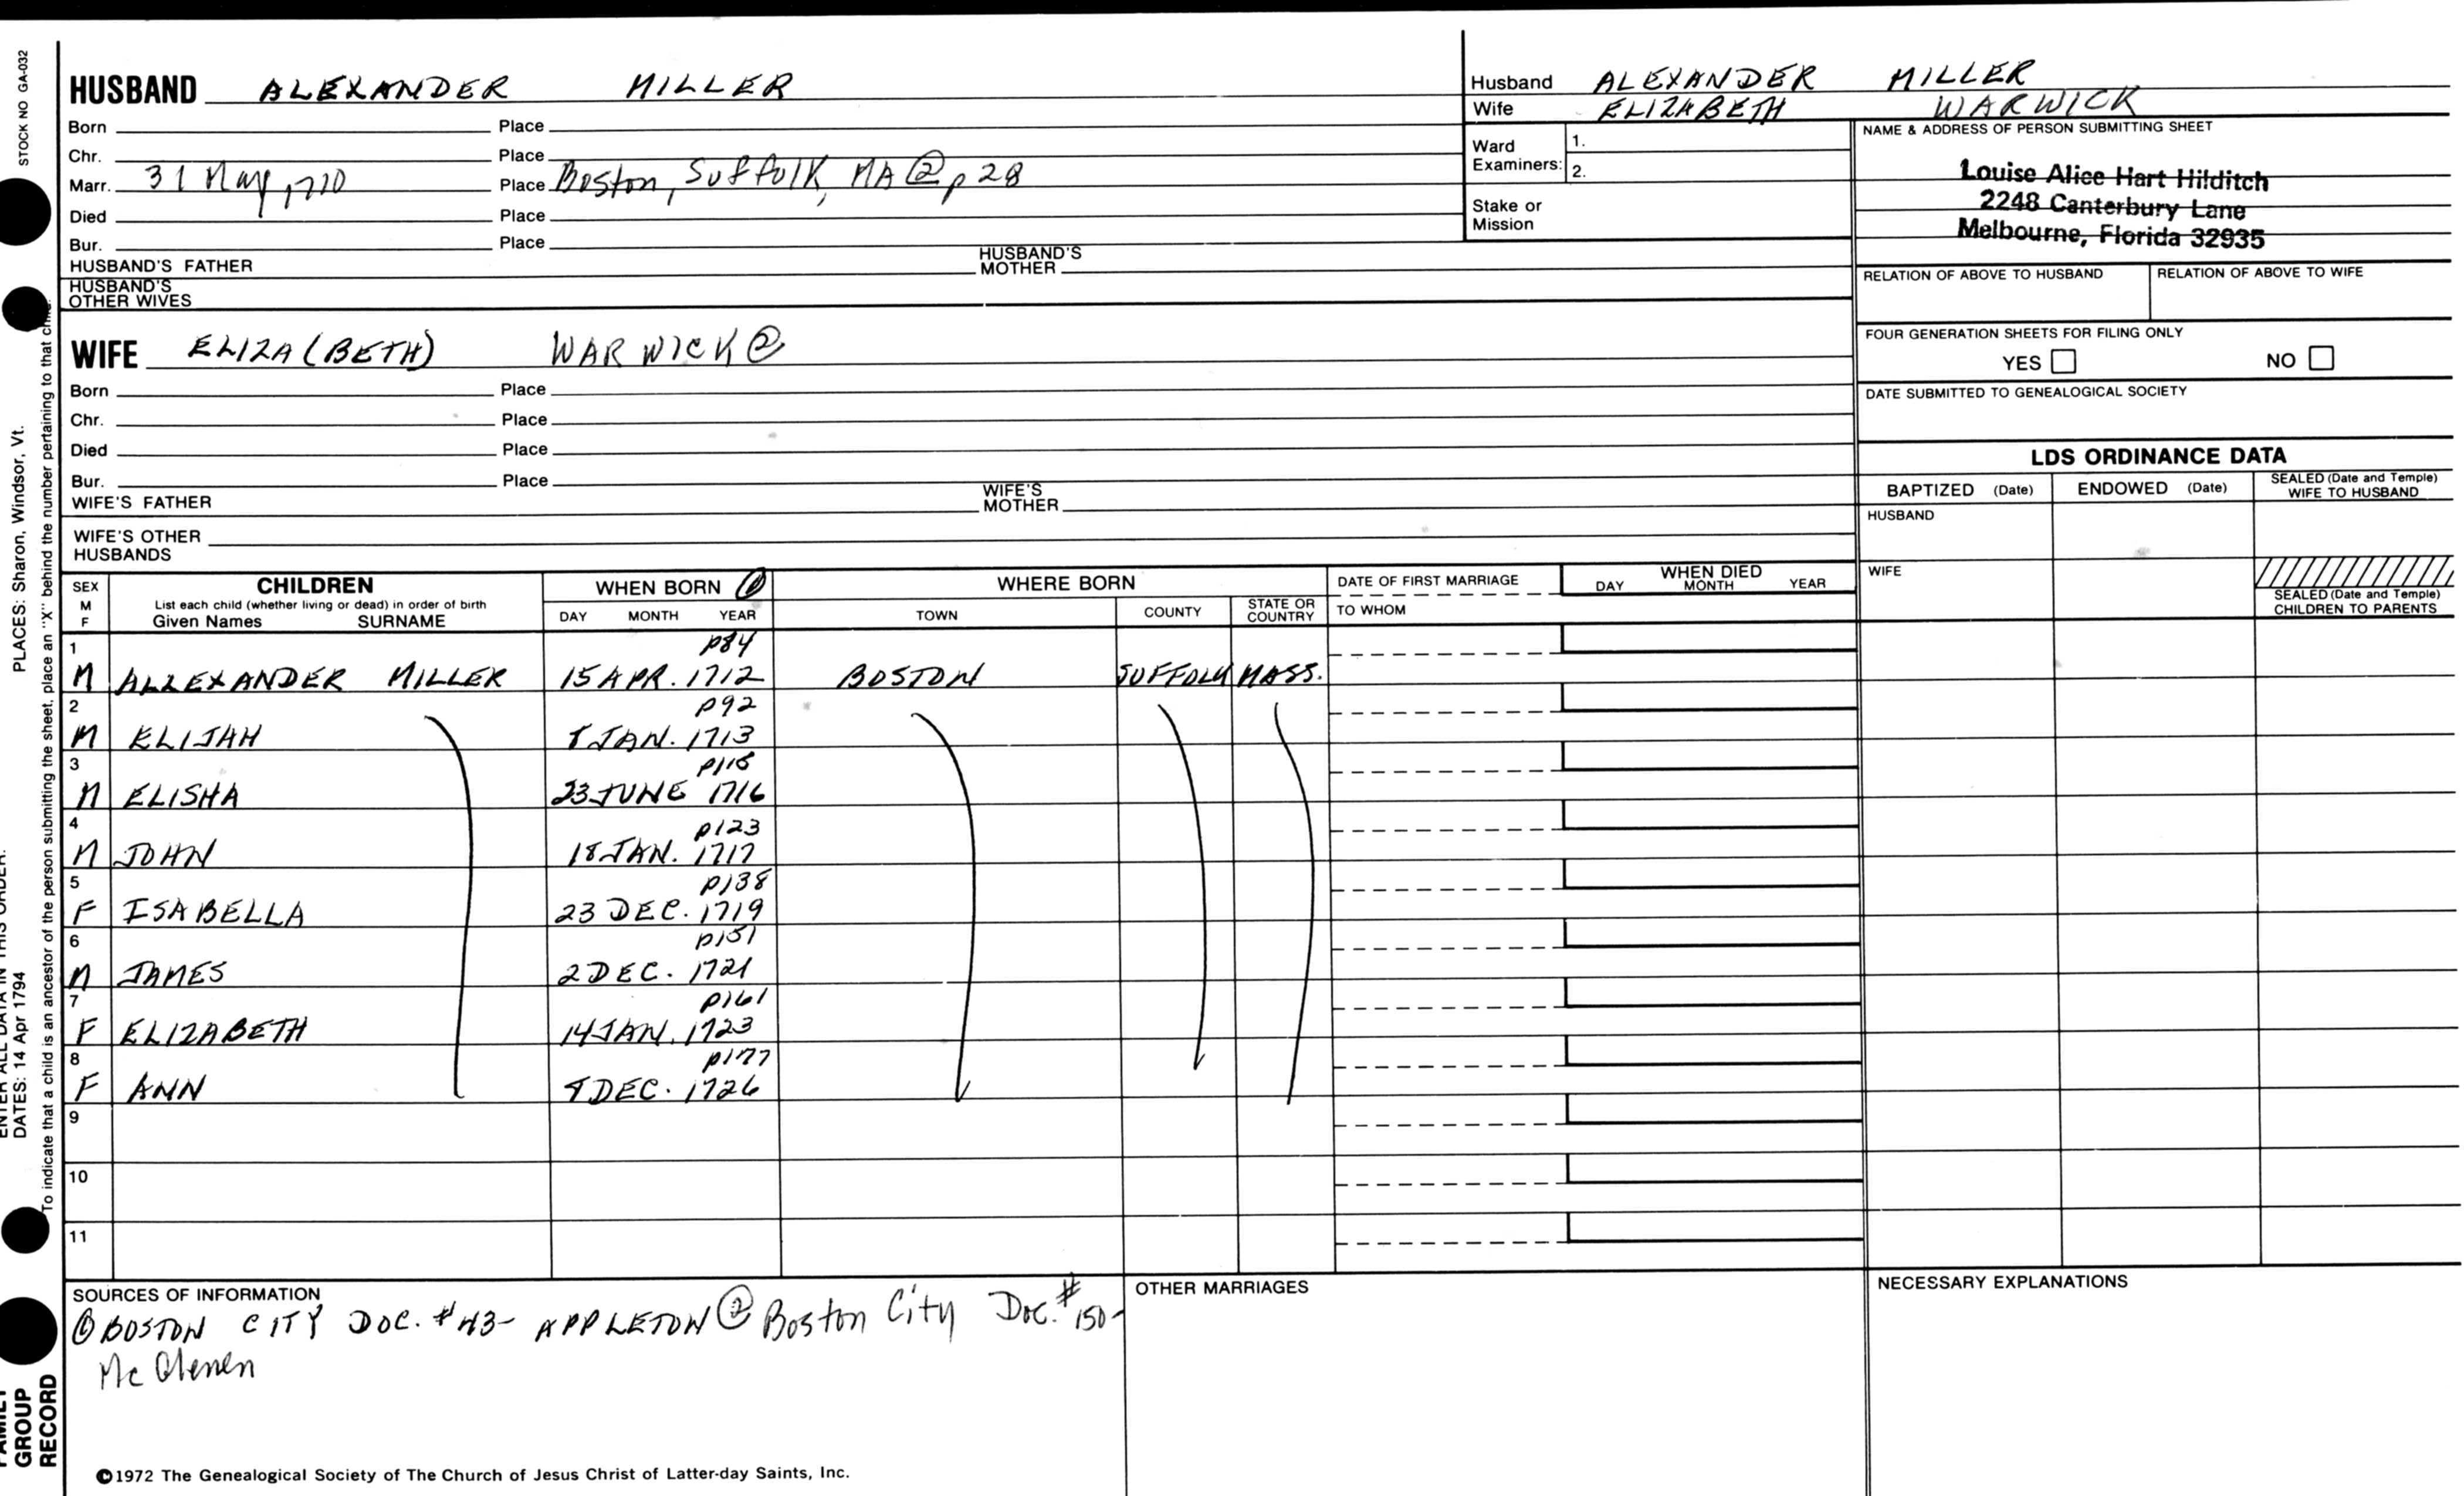 STOCK NO GA-032
PLACES: Sharon, Windsor, Vt.
To indicate that a child is an ancestor of the person submitting the sheet, place an "X" behind the number pertaining to that child.
ENTER ALL DATA IN THIS ORDER:
DATES: 14 Apr 1794
FAMILY
GROUP
RECORD
HUSBAND ALEXANDER MILLER
Born Place
Chr. Place
Marr. 31 May, 1710 Place Boston, Suffolk, MA ② p 28
Died Place
Bur. Place
HUSBAND'S FATHER HUSBAND'S MOTHER
HUSBAND'S OTHER WIVES
WIFE ELIZA(BETH) WARWICK ②
Born Place
Chr. Place
Died Place
Bur. Place
WIFE'S FATHER WIFE'S MOTHER
WIFE'S OTHER HUSBANDS
Husband ALEXANDER MILLER
Wife ELIZABETH WARWICK
Ward Examiners: 1.
2.
Stake or Mission
NAME & ADDRESS OF PERSON SUBMITTING SHEET
Louise Alice Hart Hilditch
2248 Canterbury Lane
Melbourne, Florida 32935
RELATION OF ABOVE TO HUSBAND RELATION OF ABOVE TO WIFE
FOUR GENERATION SHEETS FOR FILING ONLY
YES NO
DATE SUBMITTED TO GENEALOGICAL SOCIETY
LDS ORDINANCE DATA
BAPTIZED (Date) ENDOWED (Date) SEALED (Date and Temple) WIFE TO HUSBAND
HUSBAND
WIFE
SEALED (Date and Temple) CHILDREN TO PARENTS
SEX M F CHILDREN WHEN BORN ① WHERE BORN DATE OF FIRST MARRIAGE WHEN DIED
List each child (whether living or dead) in order of birth
Given Names SURNAME DAY MONTH YEAR TOWN COUNTY STATE OR COUNTRY TO WHOM DAY MONTH YEAR
1 p84
M ALLEXANDER MILLER 15 APR. 1712 BOSTON SUFFOLK MASS.
2 p92
M ELIJAH JAN. 1713
3
M ELISHA 23 JUNE 1716
4 p123
M JOHN 18 JAN. 1717
5 p138
F ISABELLA 23 DEC. 1719
6 p151
M JAMES 2 DEC. 1721
7 p161
F ELIZABETH 14 JAN. 1723
8 p177
F ANN DEC. 1726
9
10
11
SOURCES OF INFORMATION
① BOSTON CITY DOC. #43- APPLETON ② Boston City Doc. #150-
OTHER MARRIAGES
NECESSARY EXPLANATIONS
©1972 The Genealogical Society of The Church of Jesus Christ of Latter-day Saints, Inc.